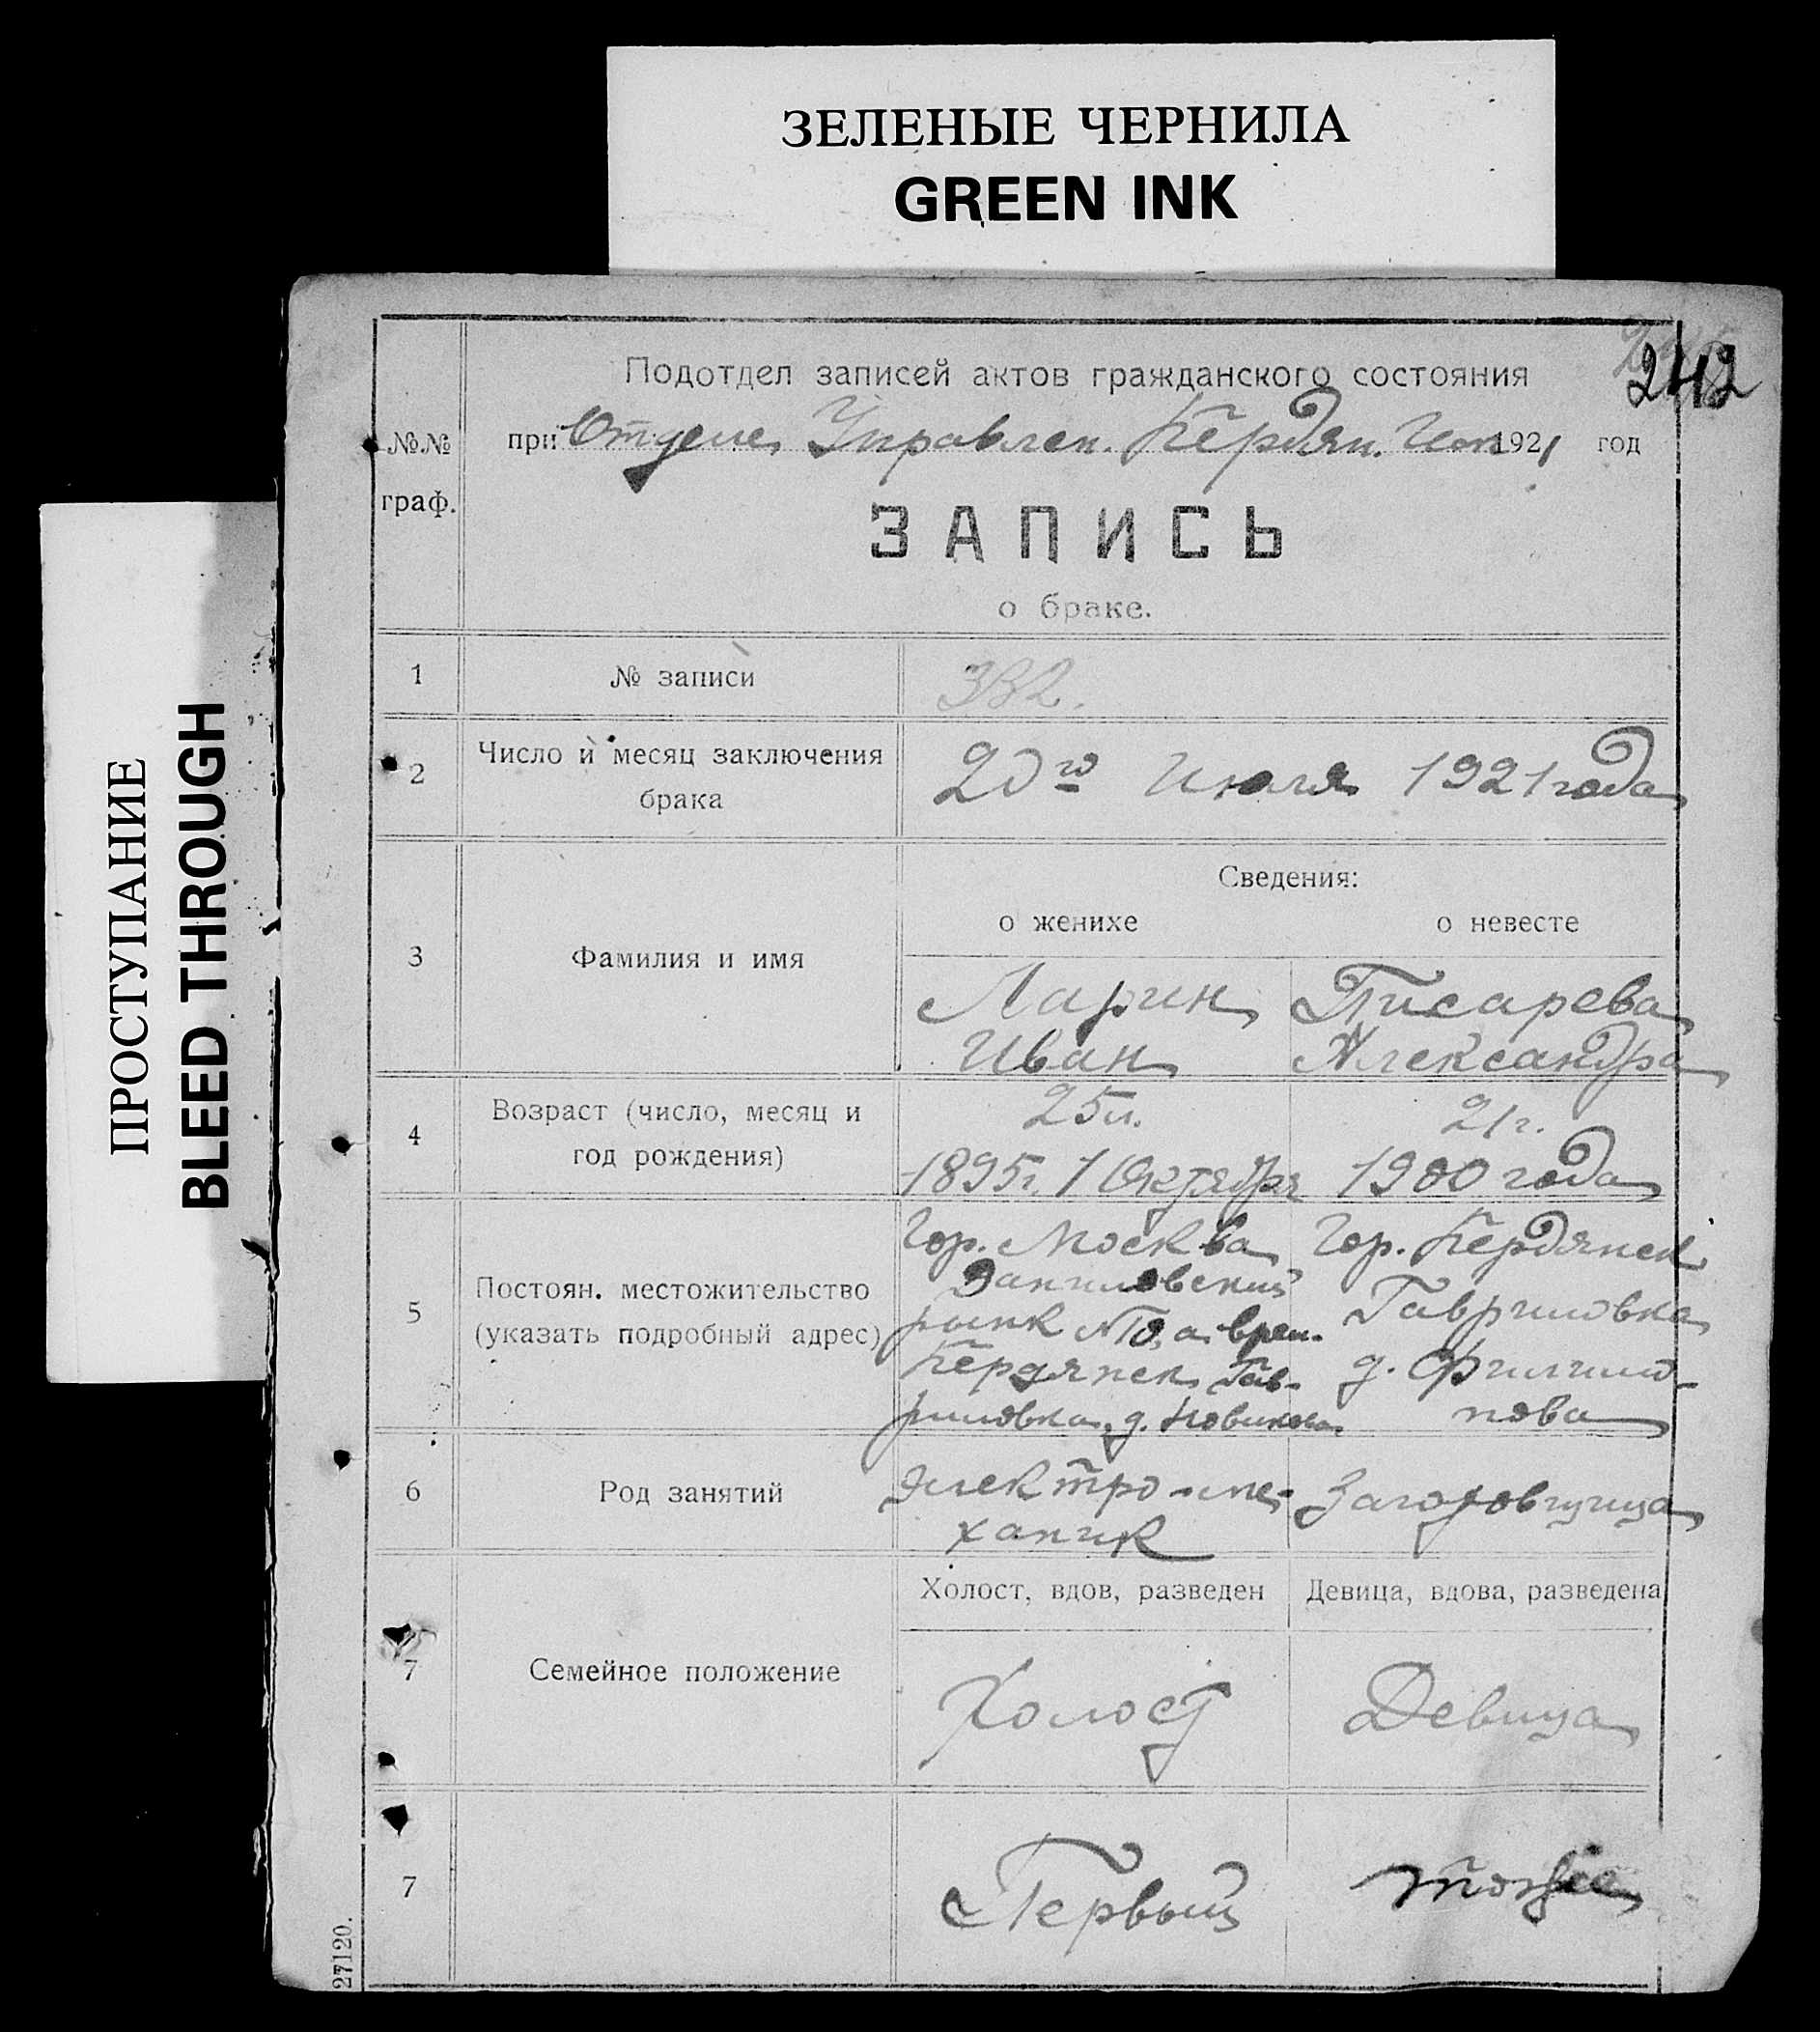 ЗЕЛЕНЫЕ ЧЕРНИЛА
GREEN INK
ПРОСТУПАНИЕ
BLEED THROUGH
242
Подотдел записей актов гражданского состояния
№№ граф.
при Отделе Управлен. Бердян. Исп 1921 год
ЗАПИСЬ
о браке.
1 № записи 332.
2 Число и месяц заключения брака 20го Июля 1921 года
Сведения:
о женихе о невесте
3 Фамилия и имя
Ларин Писарева
Иван Александра
4 Возраст (число, месяц и год рождения)
25 л. 21 г.
1895 г. 1 Октября 1900 года
5 Постоян. местожительство (указать подробный адрес)
Гор. Москва Гор. Бердянск
Даниловский Гавриловка
рынк а врем. д. Филимо-
Бердянск Гав- нова
риловка, д. Новикова
6 Род занятий
Электро-ме- Заготовщица
ханик
Холост, вдов, разведен Девица, вдова, разведена
7 Семейное положение
Холост Девица
7 Первый тоже
27120.